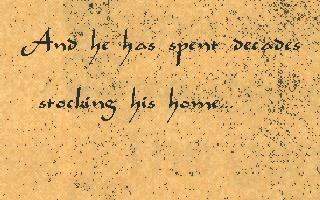 And he has spent decades
stocking his home...